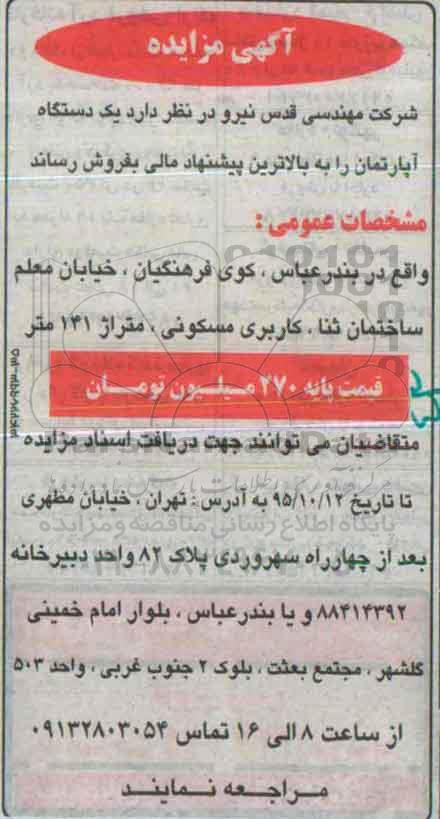 آگهی مزایده
شرکت مهندسی قدس نیرو در نظر دارد یک دستگاه
آپارتمان را به بالاترین پیشنهاد مالی بفروش رساند
مشخصات عمومی :
واقع در بندرعباس ، کوی فرهنگیان ، خیابان معلم
ساختمان ثنا ، کاربری مسکونی ، متراژ ۱۴۱ متر
قیمت پایه ۲۷۰ میلیون تومان
متقاضیان می توانند جهت دریافت اسناد مزایده
تا تاریخ ۹۵/۱۰/۱۲ به آدرس : تهران ، خیابان مطهری
بعد از چهارراه سهروردی پلاک ۸۲ واحد دبیرخانه
۸۸۴۱۴۳۹۲ و یا بندرعباس ، بلوار امام خمینی
گلشهر ، مجتمع بعثت ، بلوک ۲ جنوب غربی ، واحد ۵۰۳
از ساعت ۸ الی ۱۶ تماس ۰۹۱۳۲۸۰۳۰۵۴
مراجعه نمایند
پایگاه اطلاع رسانی مناقصه و مزایده